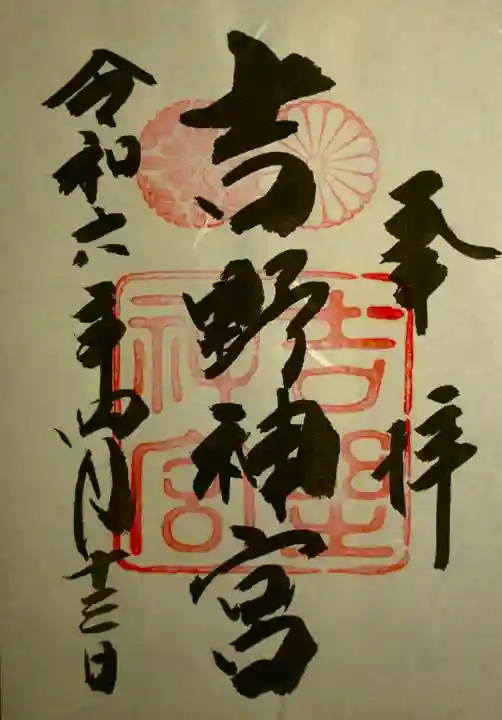 奉拝
吉野神宮
令和六年四月十三日
吉野神宮